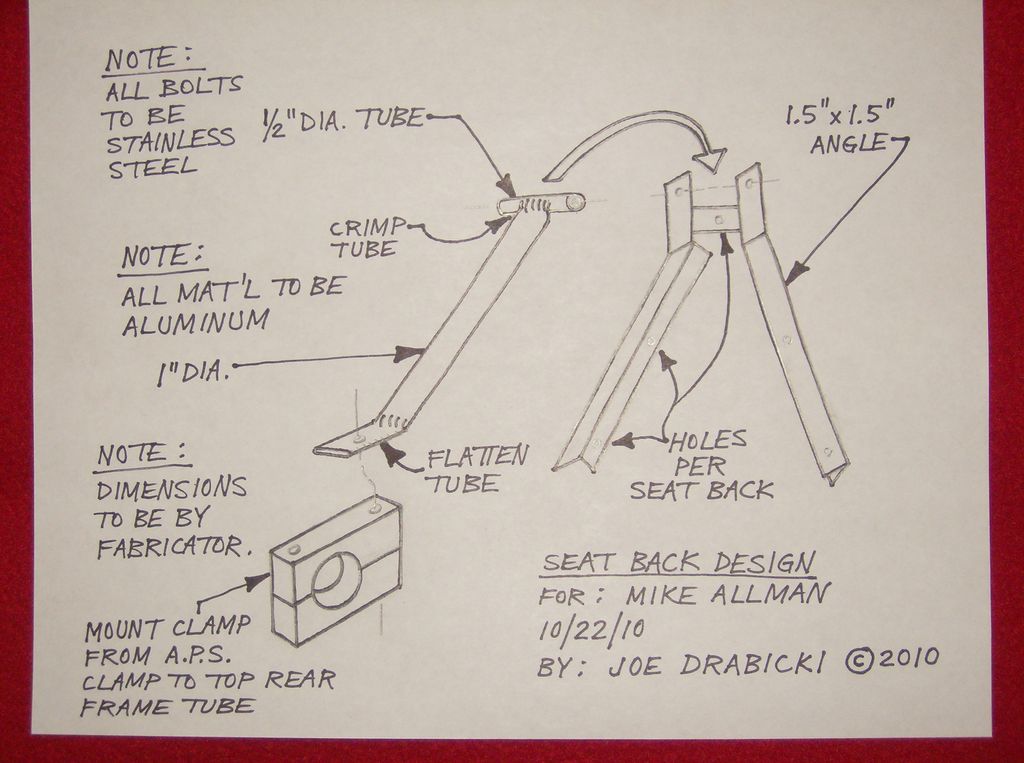 NOTE:
ALL BOLTS
TO BE
STAINLESS
STEEL
1/2" DIA. TUBE
1.5" x 1.5"
ANGLE
CRIMP
TUBE
NOTE:
ALL MAT'L TO BE
ALUMINUM
1" DIA.
NOTE:
DIMENSIONS
TO BE BY
FABRICATOR.
FLATTEN
TUBE
HOLES
PER
SEAT BACK
MOUNT CLAMP
FROM A.P.S.
CLAMP TO TOP REAR
FRAME TUBE
SEAT BACK DESIGN
FOR: MIKE ALLMAN
10/22/10
BY: JOE DRABICKI © 2010